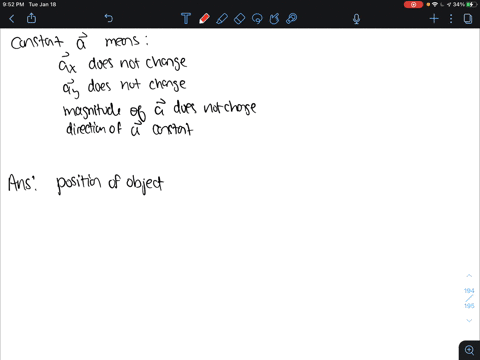 9:52 PM Tue Jan 18
34%
constat a⃗ means:
a⃗x does not change
a⃗y does not change
magnitude of a⃗ does not change
direction of a⃗ constat
Ans: position of object
194
195